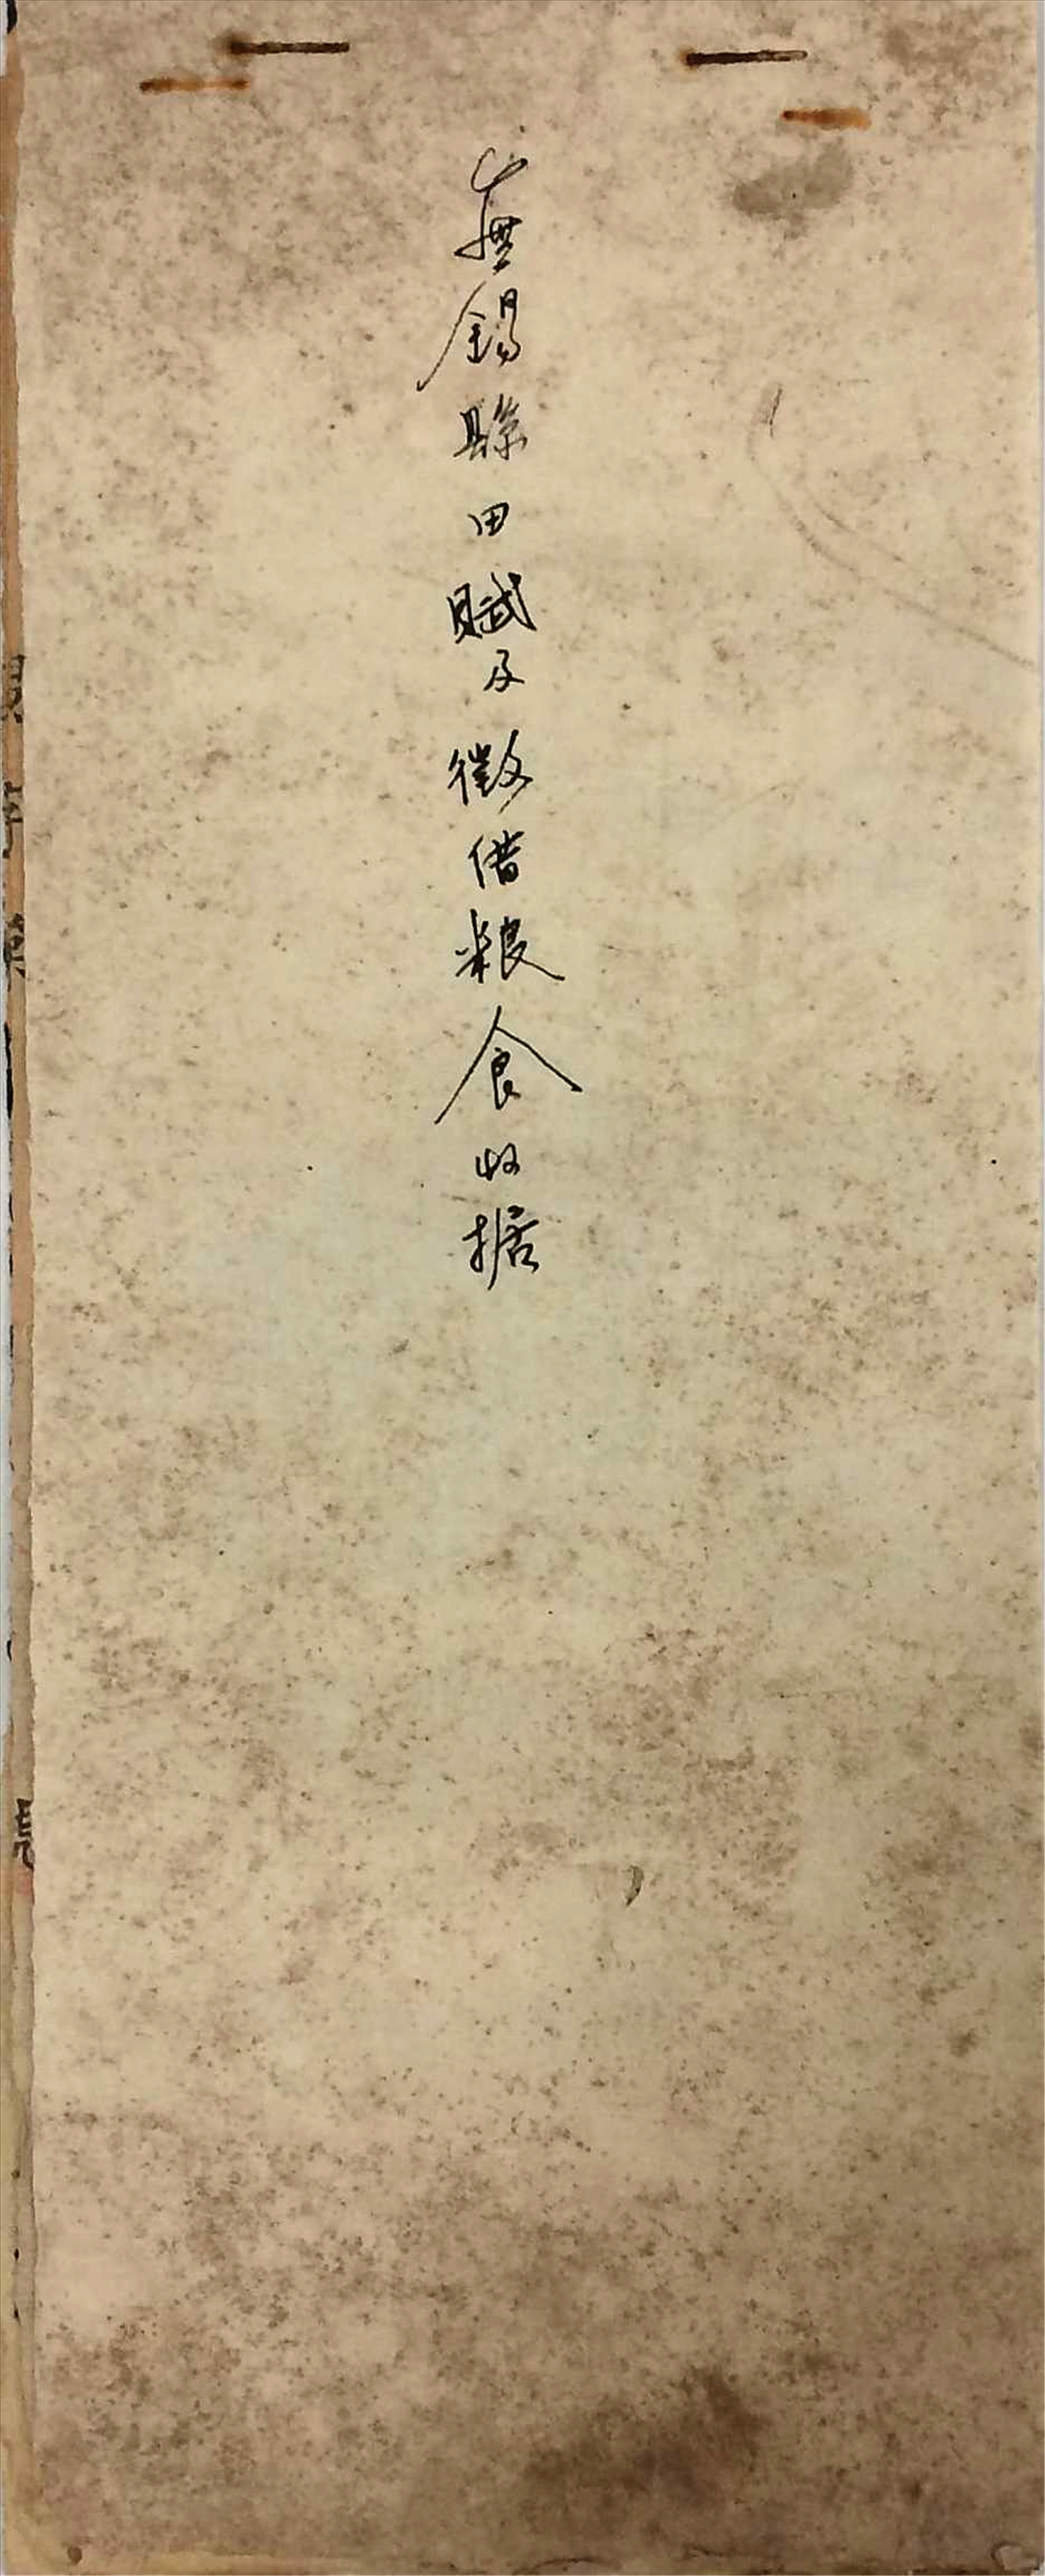 無錫縣田賦及徵借粮食收据